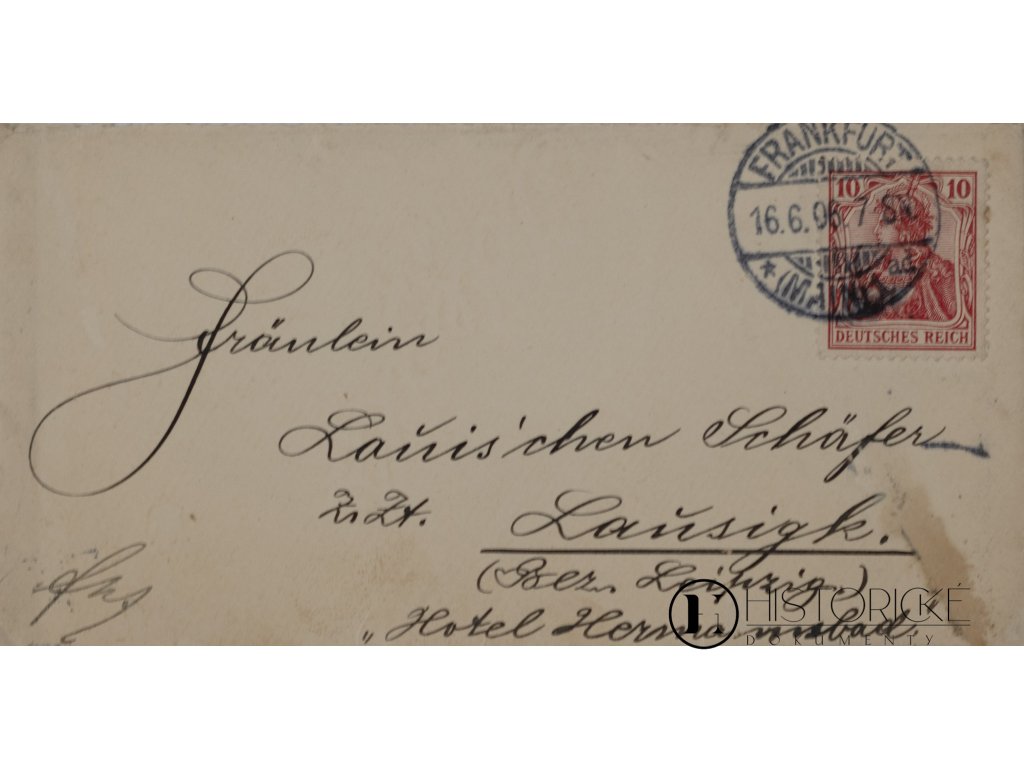 FRANKFURT
16.6.06. 7
* (MAIN)
10 10
DEUTSCHES REICH
Fräulein
Lauis'chen Schäfer
z. Zt. Lausigk.
(Bez. Leipzig.)
„Hotel Hermannsbad."
HISTORICKÉ
DOKUMENTY